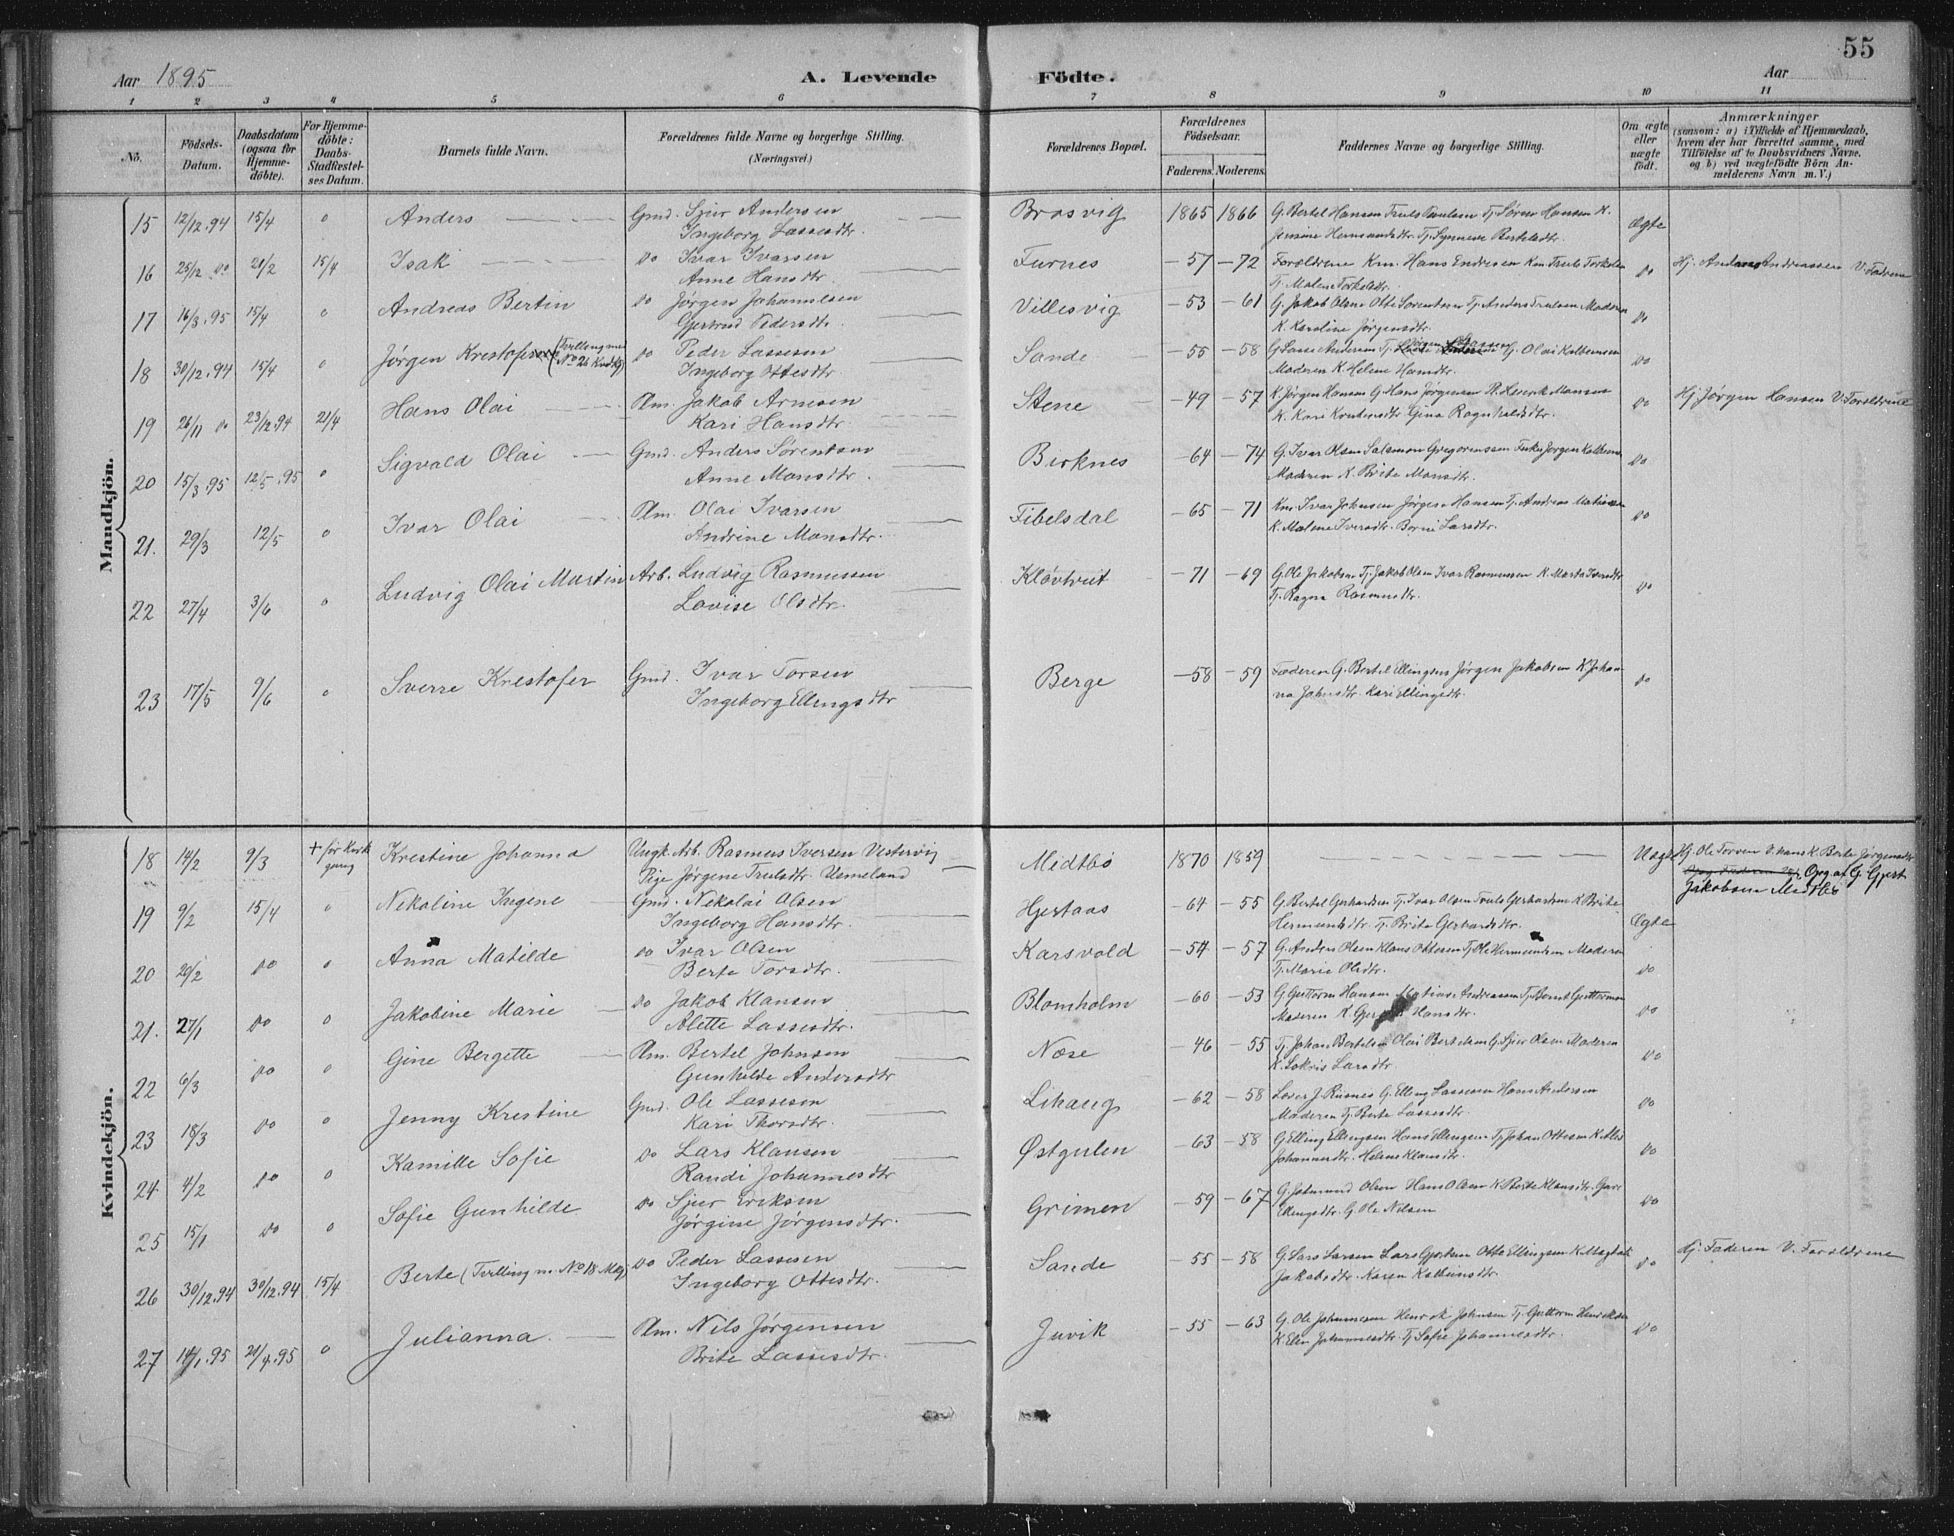 55
Aar 1895
A. Levende Födte.
Aar
1 2 3 4 5 6 7 8 9 10 11
No.
Födsels-Datum.
Daabsdatum (ogsaa for Hjemme-döbte).
For Hjemme-döbte: Daabs-Stadfæstel-ses Datum.
Barnets fulde Navn.
Forældrenes fulde Navne og borgerlige Stilling. (Næringsvei.)
Forældrenes Bopæl.
Forældrenes Födselsaar.
Faderens. Moderens.
Faddernes Navne og borgerlige Stilling.
Om ægte eller uægte födt.
Anmærkninger
(saasom: a) i Tilfælde af Hjemmedaab,
hvem der har forrettet samme, med
Tilföielse af to Daabsvidners Navne,
og b) ved uægtefödte Börn An-
melderens Navn m. V.)
Mandkjön.
15 12/12.94 15/4 0 Anders Gmd. Sjur Andersen Brosvig 1865 1866 G. Bertel Hansen Truls Paulsen Tj. Sören Hansen K. Ægte
Ingeborg Lassesdtr.
16 25/12 do 21/2 15/4 Isak do Ivar Ivarsen Furnes -57 -72 Forældrene Km. Hans Endresen Km Truls Torkelsen do Hj. Anders Andreassen V. Fadrene
Anne Hansdtr. Tj. Malene Torkelsdtr.
17 16/3.95 15/4 0 Andreas Bertin do Jørgen Johannesen Villesvig -53 -61 G. Jakob Olsen Otte Sørensen Tj. Anders Trulsen Moderen do
Gjertrud Pedersdtr. K. Karoline Jørgensdtr.
18 30/12.94 15/4 0 Jørgen Krestofer (Tvilling med No 21 Kvdkj) do Peder Lassesen Sande -55 -58 G. Lasse Andersen Tj. Jørgen Lassen G. Olai Kolbensen do
Ingeborg Ottesdtr. Moderen K. Helene Hansdtr.
19 26/11 do 23/12.94 21/4 Hans Olai Plm. Jakob Arnesen Stene -49 -57 K. Jørgen Hansen G. Hans Jørgensen Pl. Henrik Monsen do Hj. Jørgen Hansen V. Forældrene
Kari Hansdtr. K. Kari Gina Ragnhildsdtr.
20 15/3.95 12/5.95 0 Sigvald Olai Gmd. Anders Sørensen Birknes -64 -74 G. Ivar Olsen Salamon Gregoriussen Fisker Jørgen Kolbensen do
Anne Monsdtr. Moderen K. Brite Monsdtr.
21. 29/3 12/5 0 Ivar Olai Plm. Olai Ivarsen Fibelsdal -65 -71 Km. Ivar Johnsen Jørgen Hansen Tj. Andreas Matiassen do
Andrine Monsdtr. K. Malene Iversdtr. Børni Larsdtr.
22 27/4 3/6 0 Ludvig Olai Martin Arb. Ludvig Rasmussen Kløvtveit -71 -69 G. Ole Jakobsen Tj. Jakob Olsen Ivar Rasmussen K. Marta Iversdtr do
Lovise Olsdtr. Tj. Ragna Rasmusdtr.
23 17/5 9/6 0 Sverre Krestofer Gmd. Ivar Torsen Berge -58 -59 Faderen G. Bertel Ellingsen Jørgen Jakobsen K. Johan- do
Ingeborg Ellingsdtr na Johnsdtr. Kari Ellingsdtr.
Kvindekjön.
18 14/2 9/3 + før Kirkgang Krestine Johanna Ungk. Arb. Rasmus Iversen Vestervig Midtbø 1870 1859 Uægte Hj. Ole Torsen V. hans K. Berte Jørgensdtr
Pige Jørgine Trulsdtr. Opg. af G. Gjert
Jakobsen Midtbø
19 9/2 15/4 0 Nikoline Ingine Gmd. Nikolai Olsen Hjertaas -64 -55 G. Bertel Gerhardsen Tj. Ivar Olsen Truls Gerhardsen K. Brite Ægte
Ingeborg Hansdtr. Hermundsdtr. Tj. Brite Gerhardsdtr.
20 20/2 do 0 Anna Matilde do Ivar Olsen Karsvold -54 -57 G. Anders Olsen Klaus Ottesen Tj. Ole Hermundsen Moderen do
Berte Torsdtr. Tj. Marie Olsdtr.
21. 27/1 do 0 Jakobine Marie do Jakob Klausen Blomholm -60 -53 G. Guttorm Hansen Matias Andreassen Tj. Bernt Guttormsen do
Alette Lassesdtr. Moderen K. Hansdtr.
22 6/3 do 0 Gine Bergitte Plm. Bertel Johnsen Næse -46 -55 Tj. Johan Bertelsen Olai Bertelsen G. Sjur Olsen Moderen do
Gunhilde Andersdtr K. Lokris Larsdtr.
23 18/3 do 0 Jenny Krestine Gmd. Ole Lassesen Lihaug -62 -58 Lærer J. Risnes G. Elling Lassesen Hans Andersen do
Kari Thorsdtr. Moderen Tj. Berte Lassesdtr.
24 4/2 do 0 Kamille Sofie do Lars Klausen Østgulen -63 -58 G. Elling Ellingsen Hans Ellingsen Tj. Johan Ottesen K. do
Randi Johannesdtr Johannesdtr. Helene Klausdtr.
25 15/1 do 0 Sofie Gunhilde do Sjur Eriksen Grimen -59 -67 G. Joămund Olsen Hans Olsen K. Berte Klausdtr. Guri do
Jørgine Jørgensdtr. Ellingsdtr. G. Ole Nilsen
26 30/12.94 30/12.94 15/4 Berte (Tvilling m. No 18 Mdkj) do Peder Lassesen Sande -55 -58 G. Lars Larsen Lars Gjertsen Otto Ellingsen K. Magdali do Hj. Faderen V. Forældrene
Ingeborg Ottesdtr. Jakobsdtr. Karen Kolbensdtr.
27 14/1.95 21/4.95 0 Julianna. Plm. Nils Jørgensen Juvik -55 -63 G. Ole Johannesen Henrik Johnsen Tj. Guttorm Henriksen do
Brite Lassesdtr. K. Elen Johannesdtr Tj. Sofie Johannesdtr.